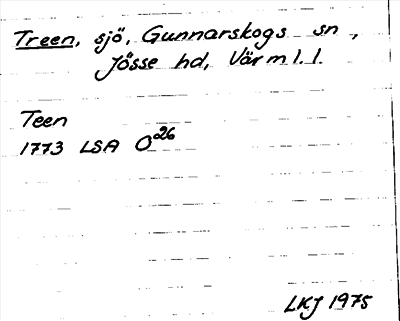 Treen, sjö, Gunnarskogs sn,
Jösse hd, Värml. l.
Teen
1773 LSA O26
LKJ 1975